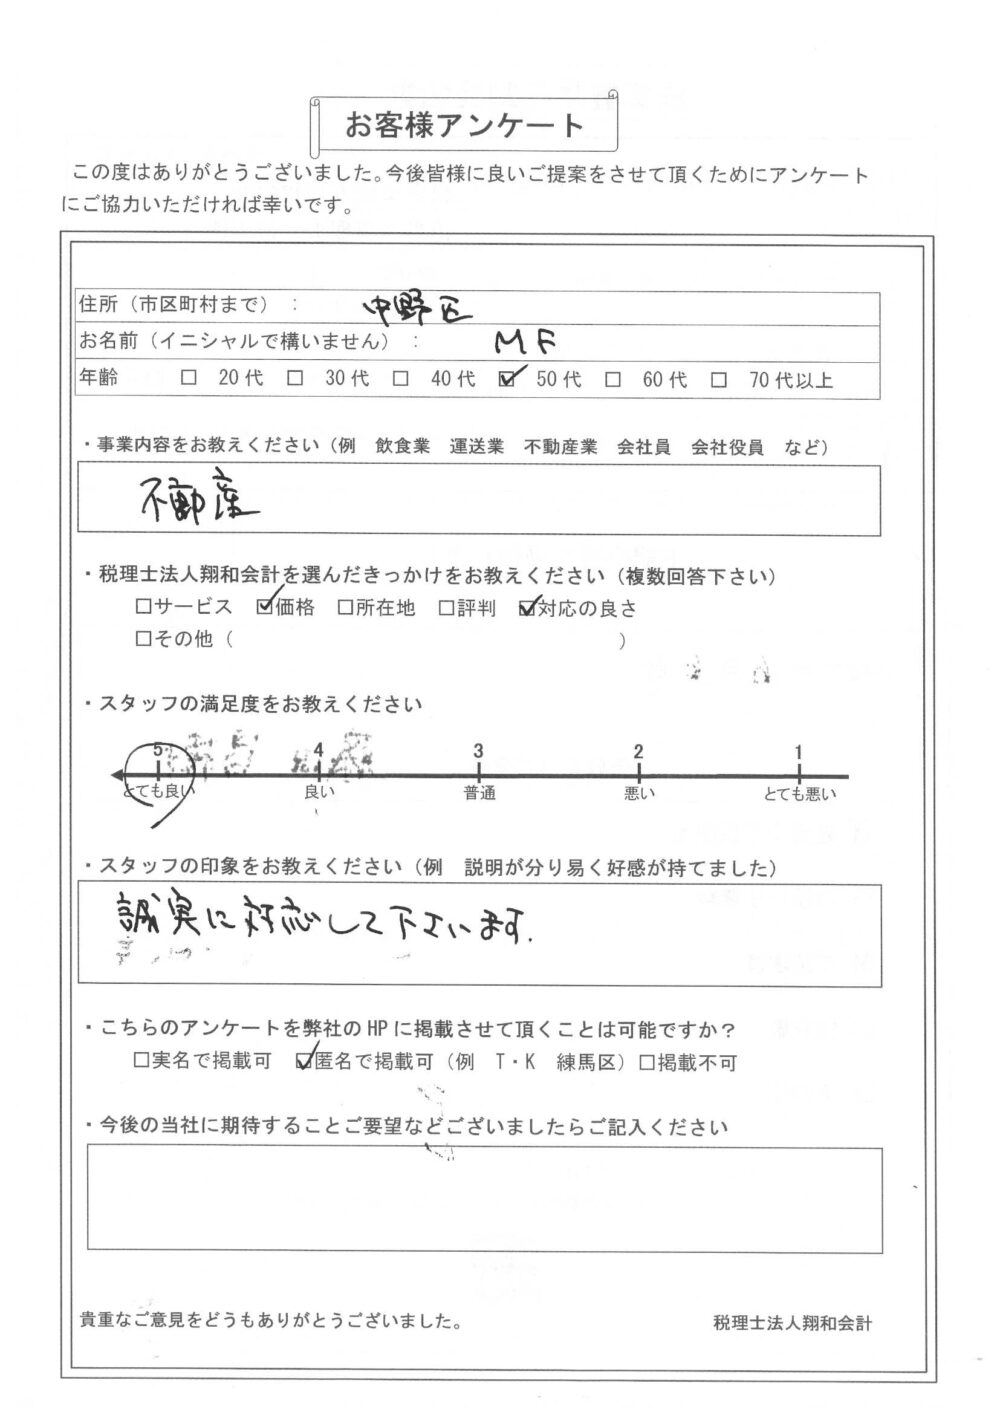 お客様アンケート
この度はありがとうございました。今後皆様に良いご提案をさせて頂くためにアンケート
にご協力いただければ幸いです。
住所（市区町村まで）： 中野区
お名前（イニシャルで構いません）： MF
年齢 □ 20代 □ 30代 □ 40代 ☑ 50代 □ 60代 □ 70代以上
・事業内容をお教えください（例 飲食業 運送業 不動産業 会社員 会社役員 など）
不動産
・税理士法人翔和会計を選んだきっかけをお教えください（複数回答下さい）
□サービス ☑価格 □所在地 □評判 ☑対応の良さ
□その他（ ）
・スタッフの満足度をお教えください
5 4 3 2 1
とても良い 良い 普通 悪い とても悪い
・スタッフの印象をお教えください（例 説明が分り易く好感が持てました）
誠実に対応して下さいます.
・こちらのアンケートを弊社のHPに掲載させて頂くことは可能ですか？
□実名で掲載可 ☑匿名で掲載可（例 T・K 練馬区）□掲載不可
・今後の当社に期待することご要望などございましたらご記入ください
貴重なご意見をどうもありがとうございました。 税理士法人翔和会計